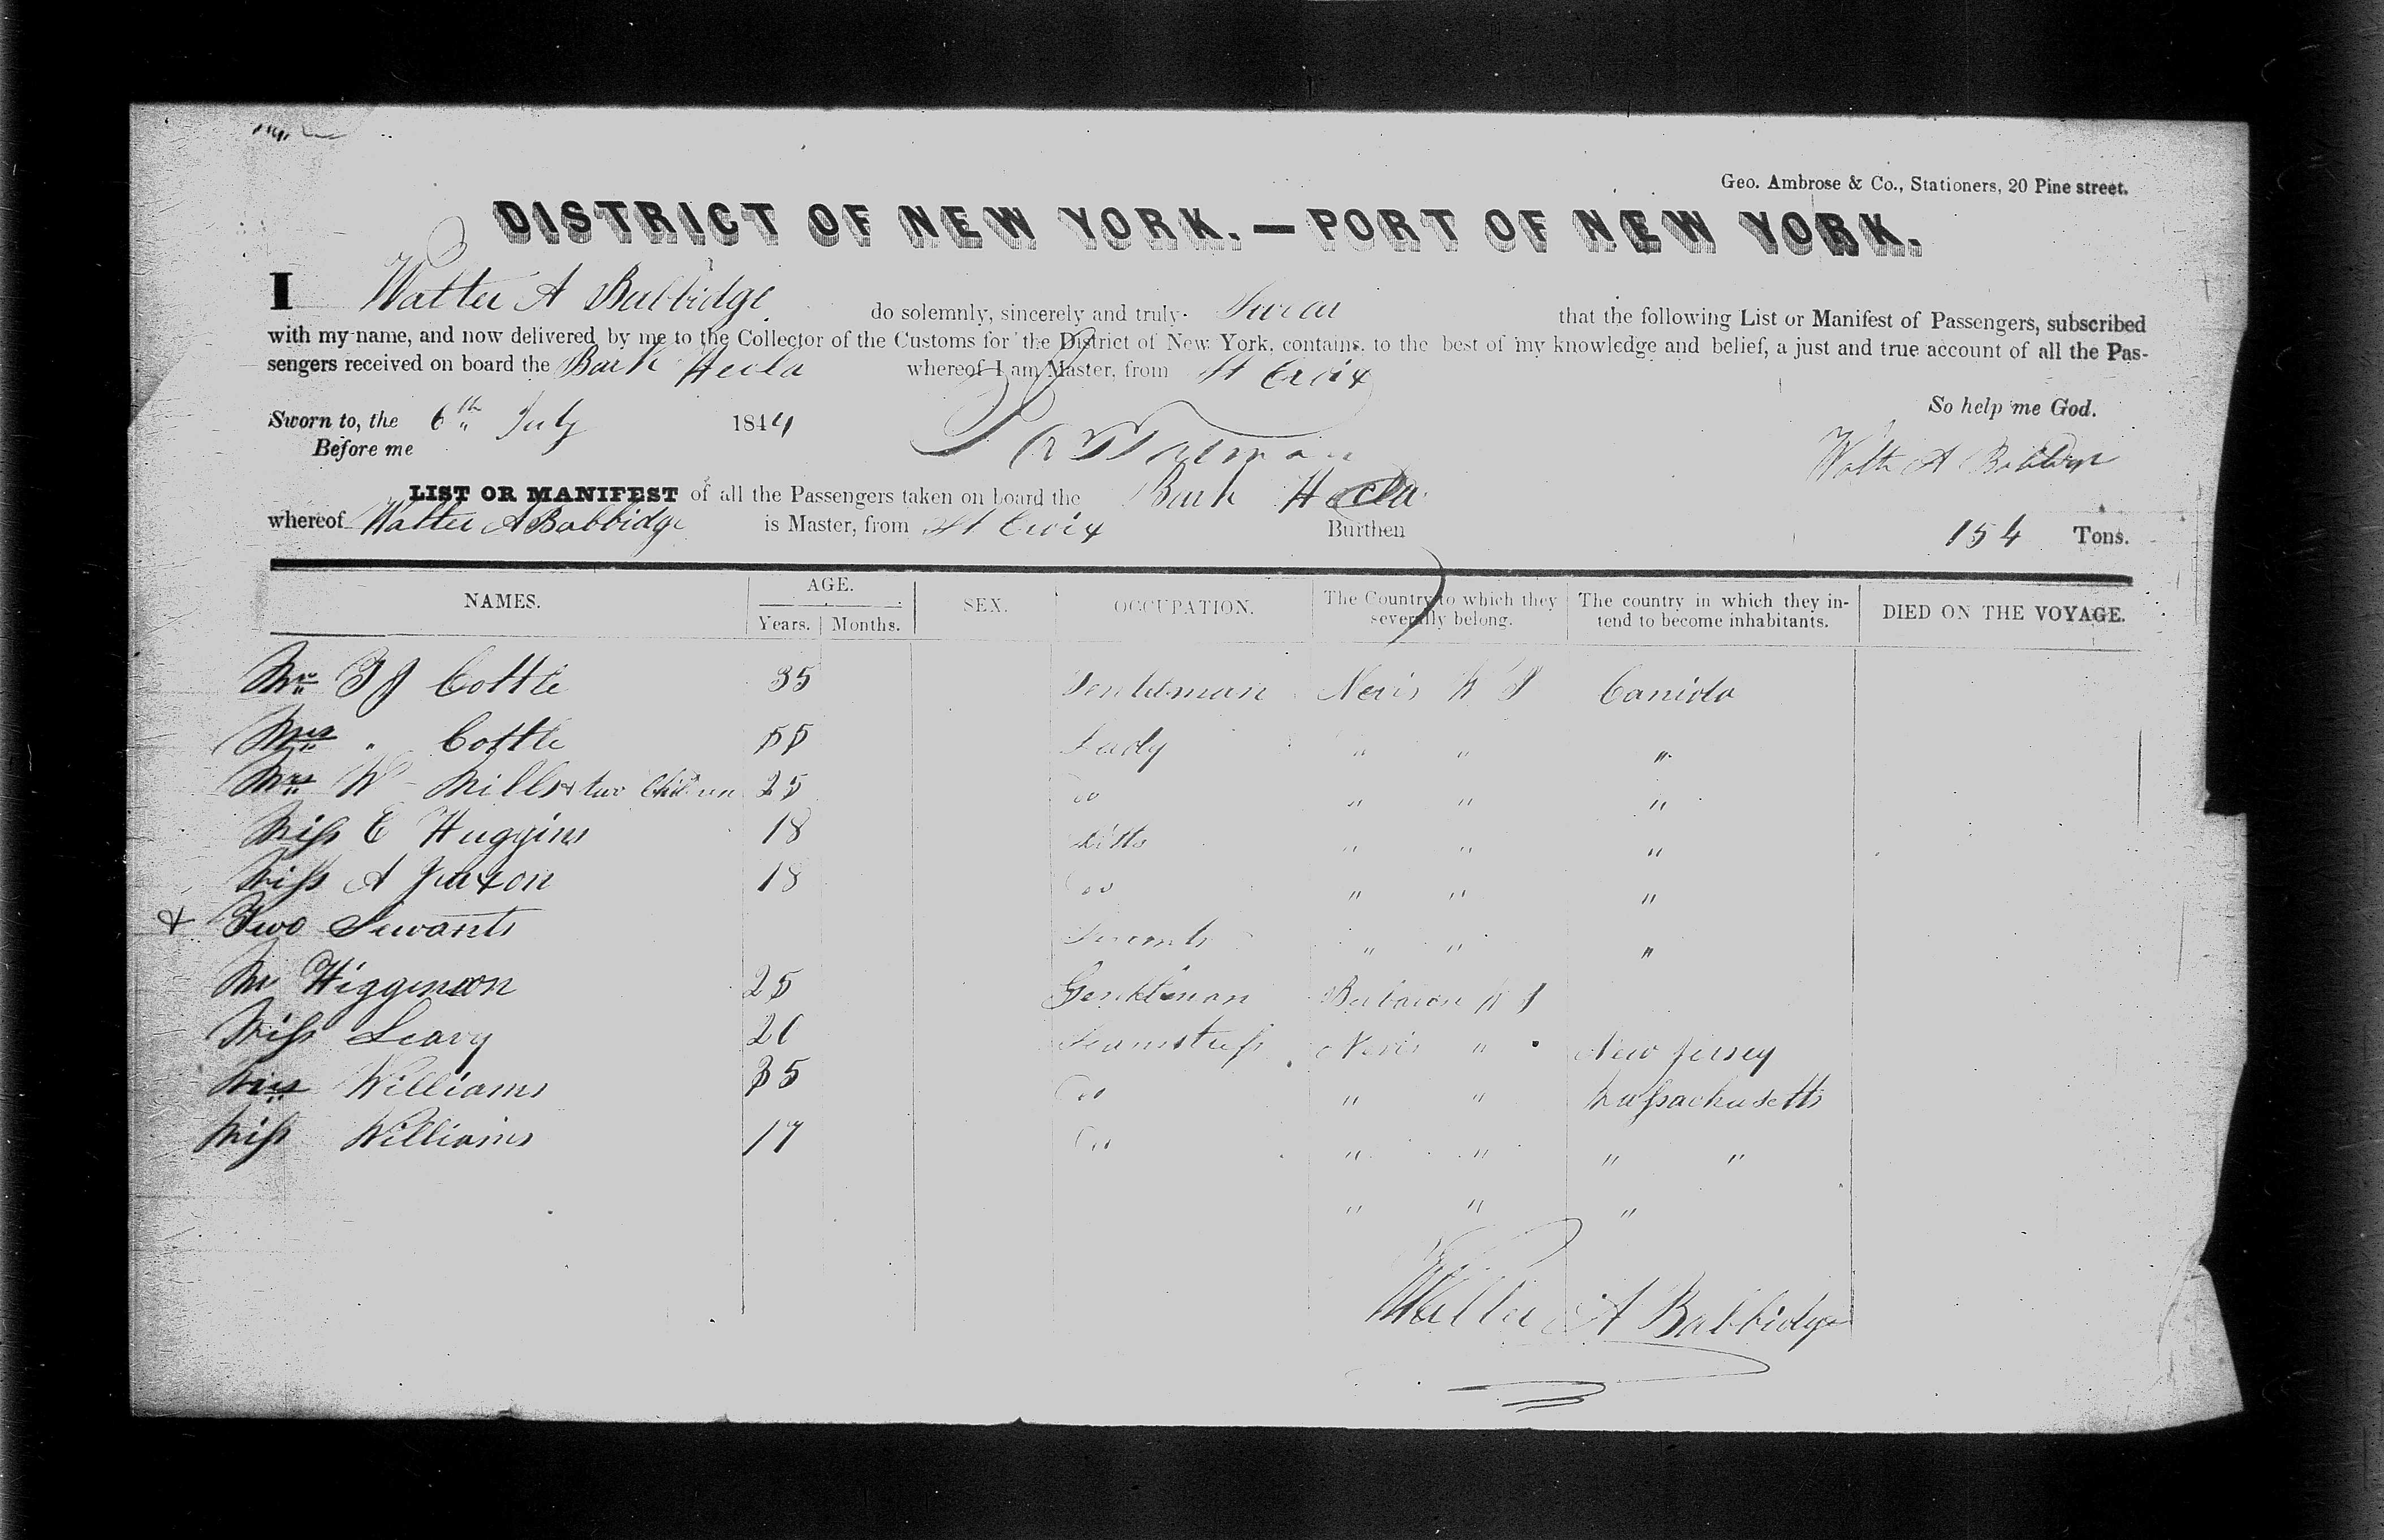 Geo. Ambrose & Co., Stationers, 20 Pine street.
DISTRICT OF NEW YORK.—PORT OF NEW YORK.
I Walter A Babbidge do solemnly, sincerely and truly Swear that the following List or Manifest of Passengers, subscribed
with my name, and now delivered by me to the Collector of the Customs for the District of New York, contains, to the best of my knowledge and belief, a just and true account of all the Pas-
sengers received on board the Bark Hecla whereof I am Master, from St Croix
So help me God.
Sworn to, the 6th July 1844
Before me
Walter A Babbidge
LIST OR MANIFEST of all the Passengers taken on board the Bark Hecla
whereof Walter A Babbidge is Master, from St Croix Burthen 154 Tons.
NAMES. AGE. Years. Months. SEX. OCCUPATION. The Country to which they severally belong. The country in which they intend to become inhabitants. DIED ON THE VOYAGE.
Mr T J Cottle 35 Gentleman Nevis W I Canida
Mrs " Cottle 55 Lady " " "
Mrs W Mills & two Children 25 do " " "
Miss E Huggins 18 ditto " " "
Miss A 18 do " " "
& Two Servants Servants " " "
Mr Higginson 25 Gentleman W I
Miss Leary 20 Seamstress Nevis " New Jersey
Mrs Williams 35 do " " Massachusetts
Miss Williams 17 do " " " "
" " "
Walter A Babbidge